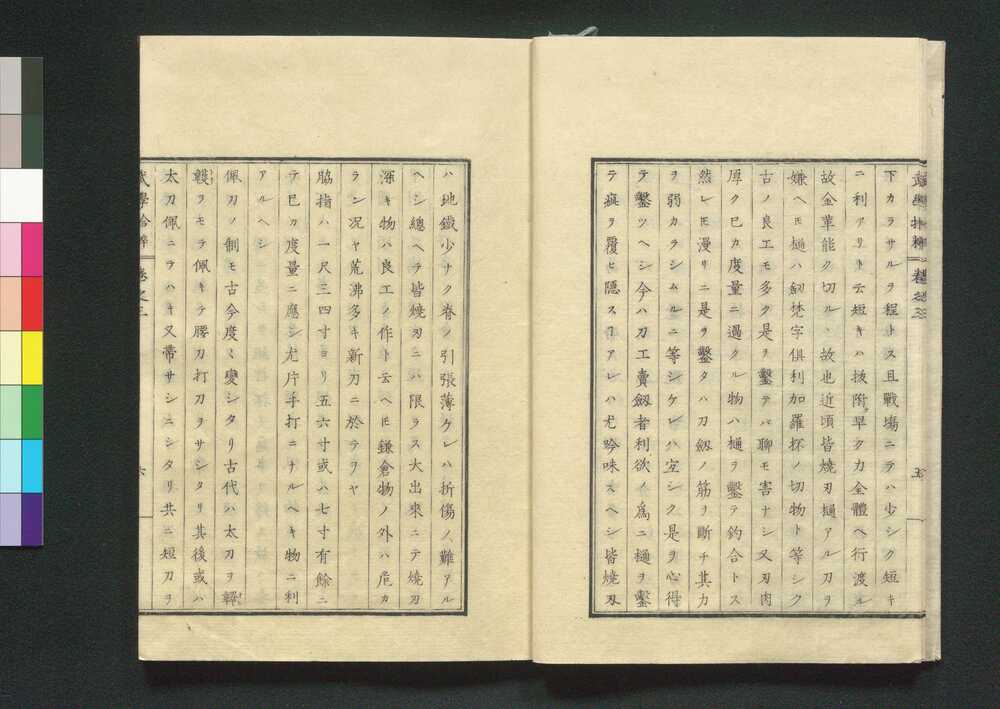 下カラサルヲ程トス且戰塲ニテハ少シク短キ
ニ利アリト云短キハ拔附早ク力全體ヘ行渡ル
故金革能ク切ル丶故也近頃皆焼刃樋アル刀ヲ
嫌ヘ𪜈樋ハ劔梵字倶利加羅抔ノ切物ト等シク
古ノ良工モ多ク是ヲ鑿テバ聊モ害ナシ又刃肉
厚ク已カ度量ニ過クル物ハ樋ヲ鑿テ釣合トス
然レ𪜈漫リニ是ヲ鑿タハ刀劔ノ筋ヲ斷チ其力
ヲ弱カラシムルニ等シケレハ空シク是ヲ心得
テ鑿ツヘシ今ハ刀工賣劔者利欲ノ爲ニ樋ヲ鑿
テ疵ヲ覆ヒ隠スヿアレハ尤吟味スヘシ皆焼刄
ハ地鐵少ナク春ノ引張薄ケレハ折傷ノ難アル
ヘシ總ヘテ皆焼刃ニハ限ラス大出來ニテ焼刃
深キ物ハ良工ノ作ト云ヘ𪜈鎌倉物ノ外ハ危カ
ラン况ヤ荒沸多キ新刀ニ於テヲヤ
脇指ハ一尺三四寸ヨリ五六寸或ハ七寸有餘ニ
テ已カ度量ニ應シ尤片手打ニナルヘキ物ニ利
アルヘシ
佩刀ノ制モ古今度〻變シタリ古代ハ太刀ヲ
ヲモテ佩キテ腰刀打刀ヲサシタリ其後或ハ
太刀佩ニテハキ又帶サシニシタリ共ニ短刀ヲ